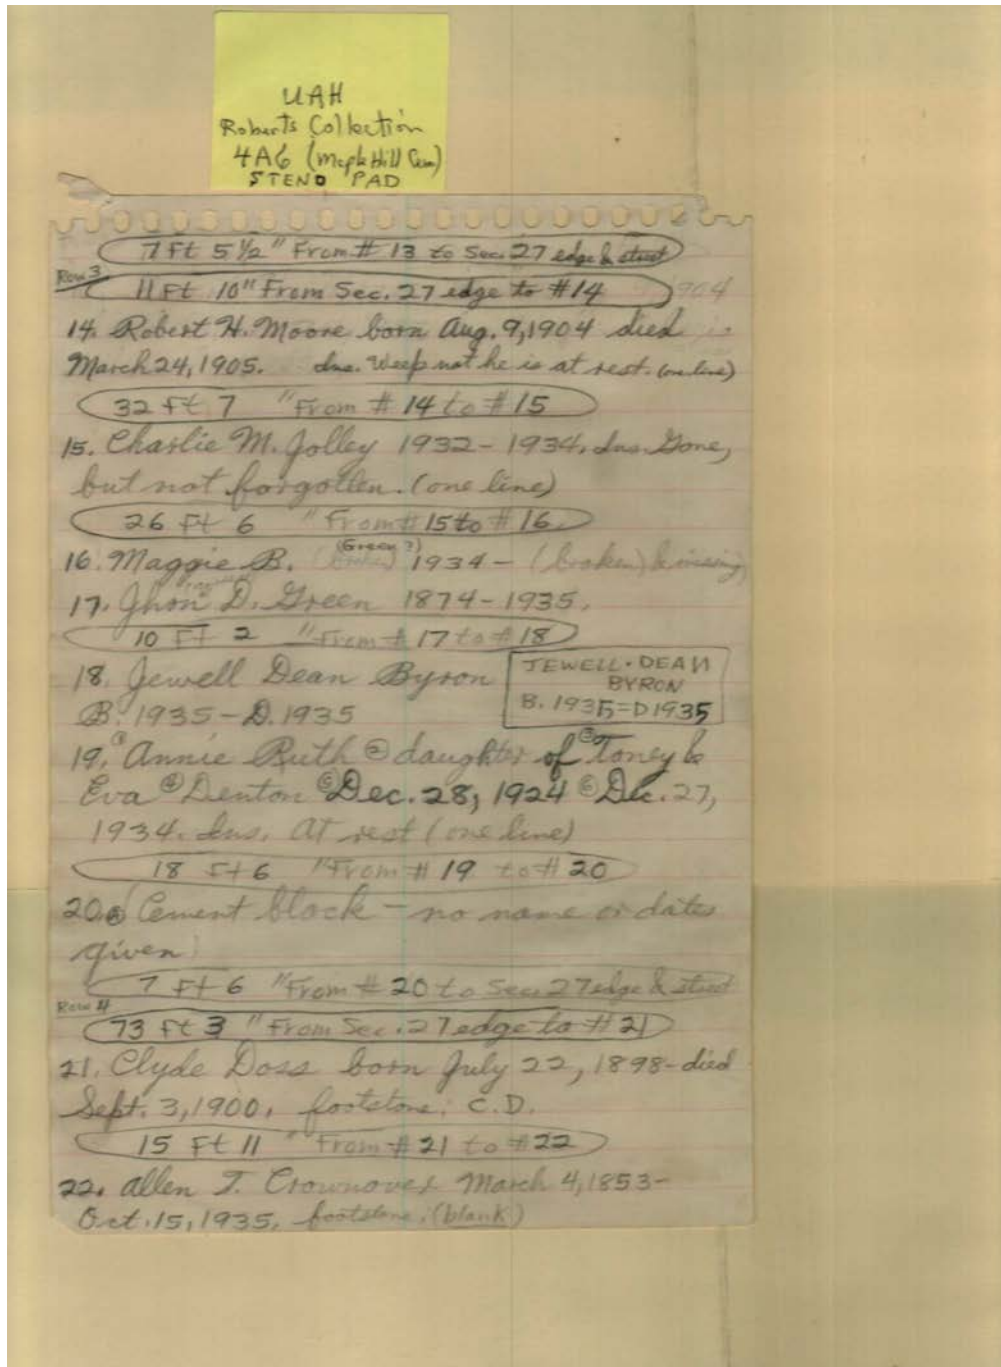 UAH
Roberts Collection
4A6 (Maple Hill Cem)
STENO PAD
7 Ft 5 1/2 " From # 13 to Sec. 27 edge & street
Row 3
11 Ft 10" From Sec. 27 edge to #14
14. Robert H. Moore born Aug. 9, 1904 died
March 24, 1905. Ins. Weep not he is at rest. (one line)
32 Ft 7 " From # 14 to # 15
15. Charlie M. Jolley 1932 - 1934. Ins. Gone,
but not forgotten. (one line)
26 Ft 6 " From # 15 to # 16
(Green?)
16. Maggie B. (broken) 1934 - (broken) & missing
17. Jhon D. Green 1874 - 1935.
10 Ft 2 " From # 17 to # 18
18. Jewell Dean Byron
B. 1935 - D. 1935
JEWELL · DEAN
BYRON
B. 1935 = D 1935
19. Annie Ruth daughter of Toney &
Eva Denton Dec. 28, 1924 Dec. 27,
1934. Ins. At rest (one line)
18 Ft 6 " From # 19 to # 20
20. Cement block - no name or dates
given
7 Ft 6 " From # 20 to Sec. 27 edge & street
Row 4
73 Ft 3 " From Sec. 27 edge to # 21
21. Clyde Doss born July 22, 1898 - died
Sept. 3, 1900. footstone: C.D.
15 Ft 11 " From # 21 to # 22
22. Allen T. Crownover March 4, 1853 -
Oct. 15, 1935. footstone: (blank)